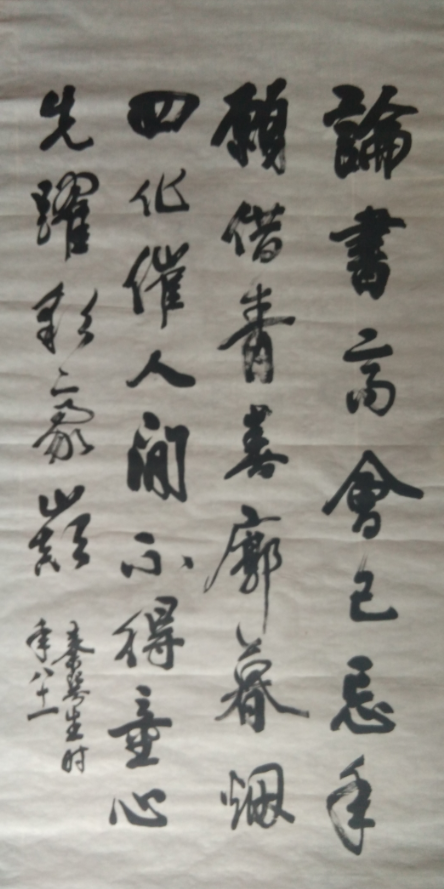 論書高會已忘年
願借青春廓暮烟
四化催人閒不得童心
先躍彩豪巔
秦咢生时
年八十一